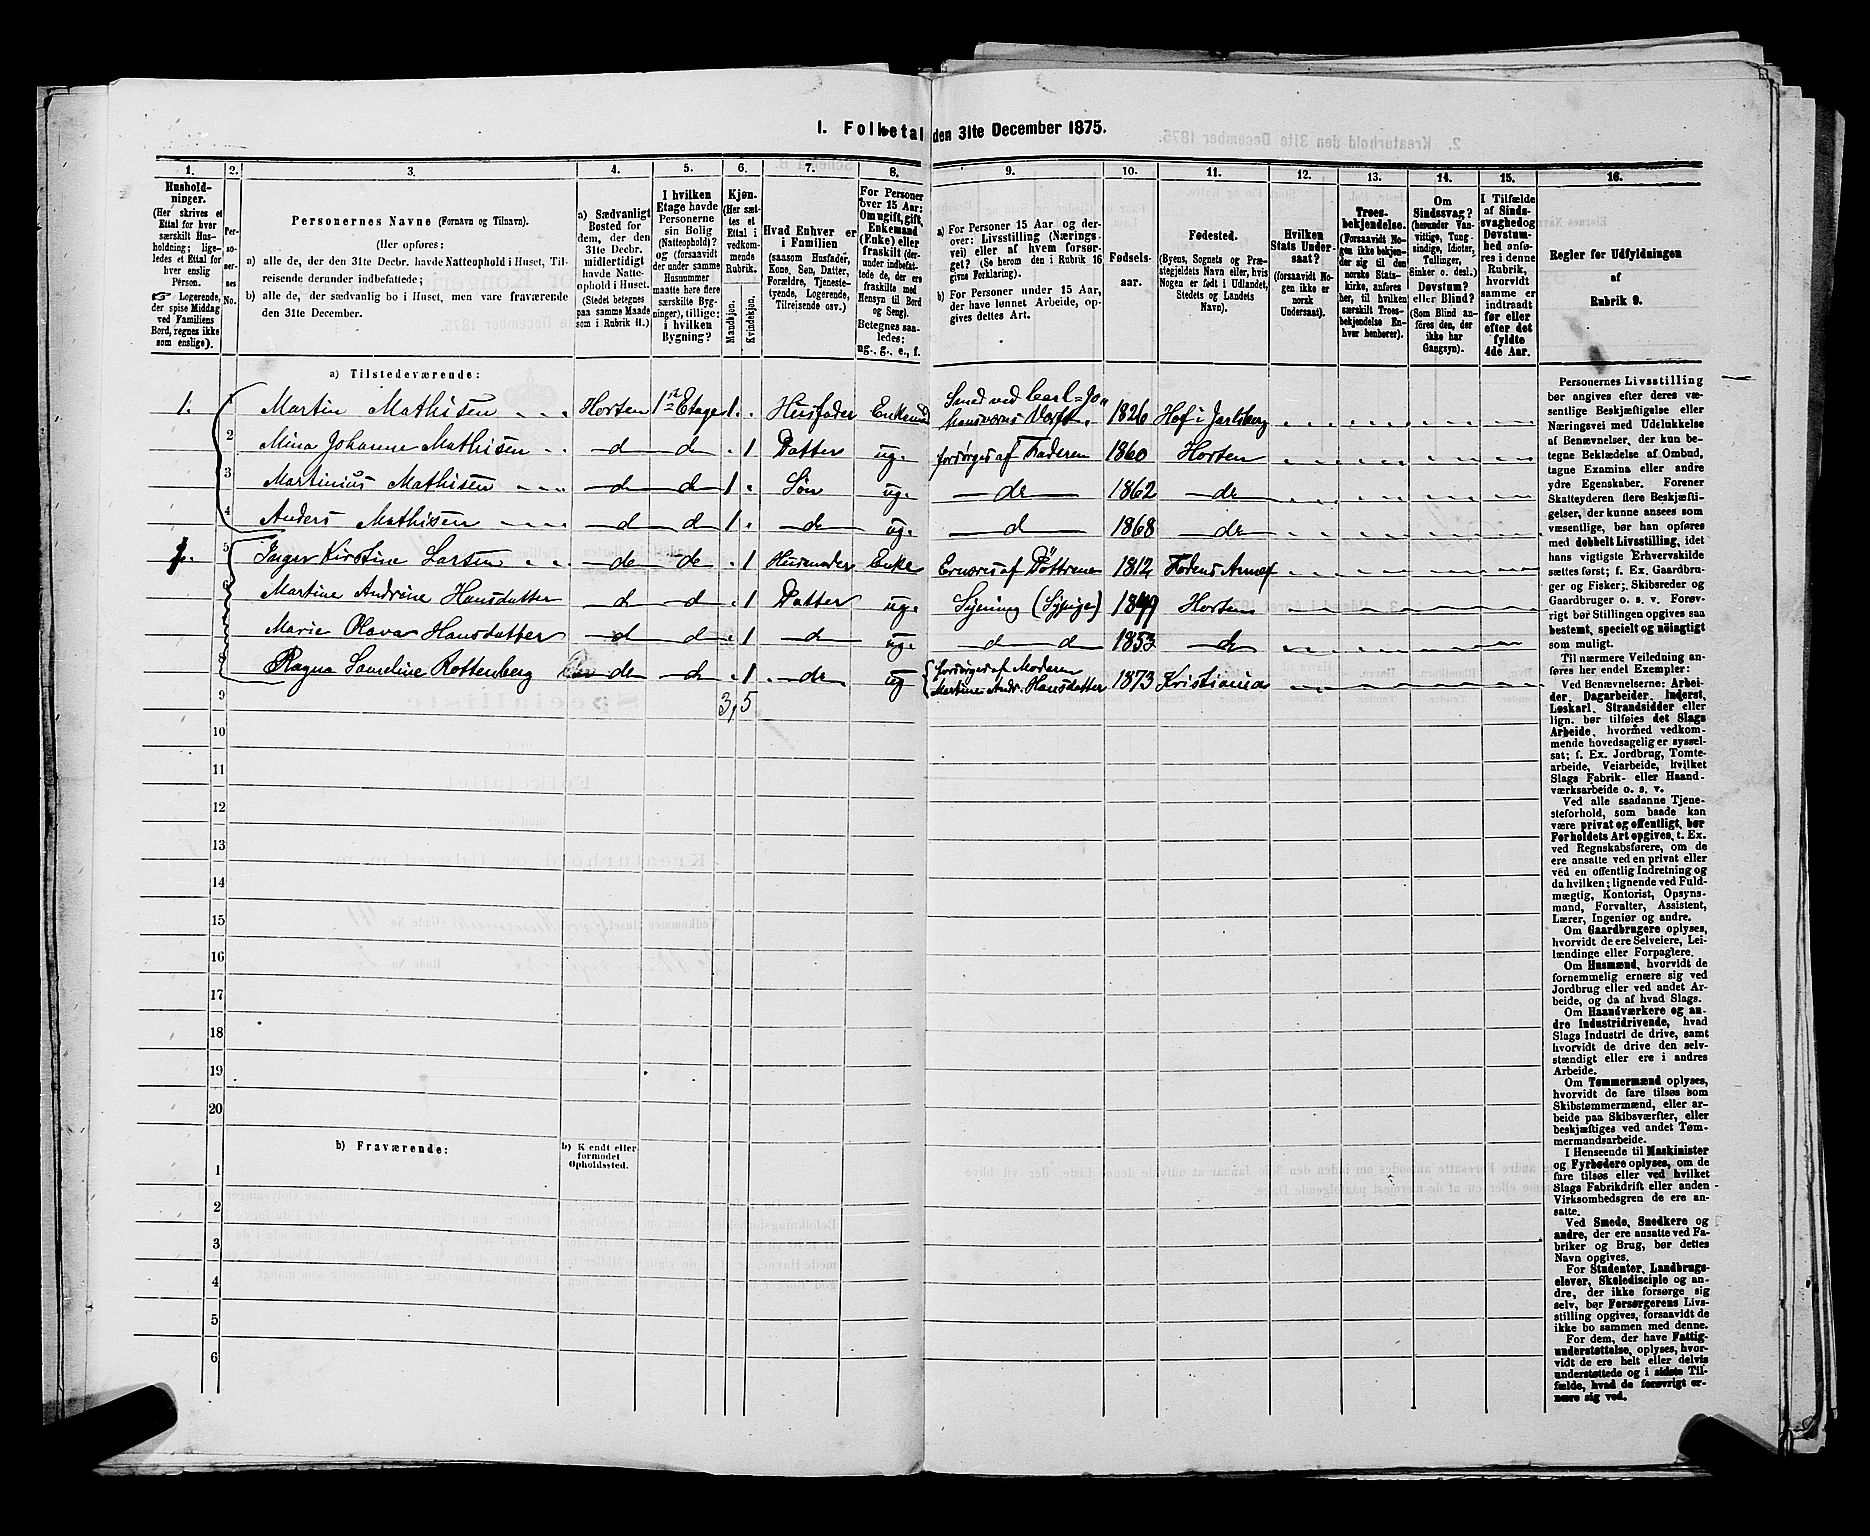 1. Folketal den 31te December 1875.
1. 2. 3. 4. 5. 6. 7. 8. 9. 10. 11. 12. 13. 14. 15. 16.
Hushold-
ninger.
(Her skrives et
Ettal for hver
særskilt Hus-
holdning; lige-
ledes et Ettal for
hver enslig
Person.
Logerende,
der spise Middag
ved Familiens
Bord, regnes ikke
som enslige).
Per-
so-
ner-
nes
No.
Personernes Navne (Fornavn og Tilnavn).
(Her opføres:
a) alle de, der den 31te Decbr. havde Natteophold i Huset, Til-
reisende derunder indbefattede;
b) alle de, der sædvanlig bo i Huset, men vare fraværende
den 31te December.
a) Sædvanligt
Bosted for
dem, der den
31te Decbr.
midlertidigt
havde Natte-
ophold i Huset.
(Stedet betegnes
paa samme Maade
som i Rubrik 11.)
I hvilken
Etage havde
Personerne
sin Bolig
(Natteophold)?
og (forsaavidt
der under samme
Husnummer
maatte høre flere
særskilte Byg-
ninger), tillige:
i hvilken
Bygning?
Kjøn.
(Her sæt-
tes et
Ettal i
vedkom-
mende
Rubrik.
Mandkjøn.
Kvindekjøn.
Hvad Enhver er
i Familien
(saasom Husfader,
Kone, Søn, Datter,
Forældre, Tjeneste-
tyende, Logerende,
Tilreisende osv.)
For Personer
over 15 Aar:
Om ugift, gift,
Enkemand
(Enke) eller
fraskilt (der-
under indbefat-
tede de, der ere
fraskilte med
Hensyn til Bord
og Seng).
Betegnes saa-
ledes:
ug., g., e., f.
a) For Personer 15 Aar og der-
over: Livsstilling (Nærings-
vei) eller af hvem forsør-
get? (Se herom den i Rubrik 16
givne Forklaring).
b) For Personer under 15 Aar,
der have lønnet Arbeide, op-
gives dettes Art.
Fødsels-
aar.
Fødested.
(Byens, Sognets og Præ-
stegjeldets Navn eller, hvis
Nogen er født i Udlandet,
Stedets og Landets
Navn).
Hvilken
Stats Under-
saat?
(forsaavidt No-
gen ikke er
norsk
Undersaat).
Troes-
bekjendelse.
(Forsaavidt No-
gen ikke bekjen-
der sig til den
norske Stats-
kirke, anføres
her, til hvilken
særskilt Troes-
bekjendelse En-
hver henhører).
Om
Sindssvag?
(herunder Van-
vittige, Tung-
sindige, Idioter,
Tullinger,
Sinker o. desl.)
Døvstum?
eller Blind?
(Som Blind an-
føres den, der
ikke har
Gangsyn).
I Tilfælde
af Sinds-
svaghed og
Døvstum-
hed anfø-
res i denne
Rubrik,
hvorvidt
samme er
indtraadt
før eller
efter det
fyldte
4de Aar.
Regler for Udfyldningen
af
Rubrik 9.
a) Tilstedeværende:
1. 1 Martin Mathisen Horten 1ste Etage 1 Husfader Enkemd Smed ved Carl-Jo-
hansværns Værft. 1826 Hof i Jarlsberg
2 Mina Johanne Mathisen d d 1 Datter ug. forsørges af Faderen 1860 Horten
3 Martinius Mathisen d d 1 Søn ug. de 1862 de
4 Anders Mathisen d d 1 de ug. d 1868 de
1. 5 Inger Kirstine Larsen de de 1 Husmoder Enke Ernæres af Døttrene 1812
6 Martine Andrine Hansdatter d d 1 Datter ug. Syning (Sypige) 1849 Horten
Marie Olava Hansdatter d d 1 d ug. d d 1853 d
8 Ragna Rottenberg de de 1 de ug forsørges af Moderen
Martine Andr. Hansdatter 1873 Kristiania
9 3,5
10
11
12
13
14
15
16
17
18
19
20
b) Fraværende:
b) Kjendt eller
formodet
Opholdssted.
1
2
3
4
5
6
Personernes Livsstilling
bør angives efter deres væ-
sentlige Beskjæftigelse eller
Næringsvei med Udelukkelse
af Benævnelser, der kun be-
tegne Beklædelse af Ombud,
tagne Examina eller andre
ydre Egenskaber. Forener
Skatteyderen flere Beskjæfti-
gelser, der kunne ansees som
væsentlige, bør han opføres
med dobbelt Livsstilling, idet
hans vigtigste Erhvervskilde
sættes først; f. Ex. Gaardbru-
ger og Fisker; Skibsreder og
Gaardbruger o. s. v. Forøv-
rigt bør Stillingen opgives saa
bestemt, specielt og nøiagtigt
som muligt.
Til nærmere Veiledning an-
føres her endel Exempler:
Ved Benævnelserne: Arbei-
der, Dagarbeider, Inderst,
Løskarl, Strandsidder eller
lign. bør tilføies det Slags
Arbeide, hvormed vedkom-
mende hovedsagelig er syssel-
sat; f. Ex. Jordbrug, Tomte-
arbeide, Veiarbeide, hvilket
Slags Fabrik- eller Haand-
værksarbeide o. s. v.
Ved alle saadanne Tjene-
steforhold, som baade kan
være privat og offentligt, bør
Forholdets Art opgives, t. Ex.
ved Regnskabsførere, om de
ere ansatte ved en privat eller
ved en offentlig Indretning og
da hvilken; lignende ved Fuld-
mægtig, Kontorist, Opsyns-
mand, Forvalter, Assistent,
Lærer, Ingeniør og andre.
Om Gaardbrugere oplyses,
hvorvidt de ere Selveiere, Lei-
lændinge eller Forpagtere.
Om Husmænd, hvorvidt de
fornemmelig ernære sig ved
Jordbrug eller ved andet Ar-
beide, og da af hvad Slags.
Om Haandværkere og an-
dre Industridrivende, hvad
Slags Industri de drive, samt
hvorvidt de drive den selv-
stændigt eller ere i andres
Arbeide.
Om Tømmermænd oplyses,
hvorvidt de fare tilsøs som
Skibstømmermænd, eller ar-
beide paa Skibsværfter, eller
beskjæftiges ved andet Tøm-
mermandsarbeide.
I Henseende til Maskinister
og Fyrbødere oplyses, om de
fare tilsøs eller ved hvilket
Slags Fabrikdrift eller anden
Virksomhedsgren de ere an-
satte.
Ved Smede, Snedkere og
andre, der ere ansatte ved Fa-
briker og Brug, bør dettes
Navn opgives.
For Studenter, Landbrugs-
elever, Skoledisciple og an-
dre, der ikke forsørge sig
selv, bør Forsørgerens Livs-
stilling opgives, forsaavidt de
ikke bo sammen med denne.
For dem, der have Fattig-
understøttelse, oplyses, hvor-
vidt de ere helt eller delvis
understøttede og i sidste Til-
fælde, hvad de forøvrigt er-
nære sig ved.